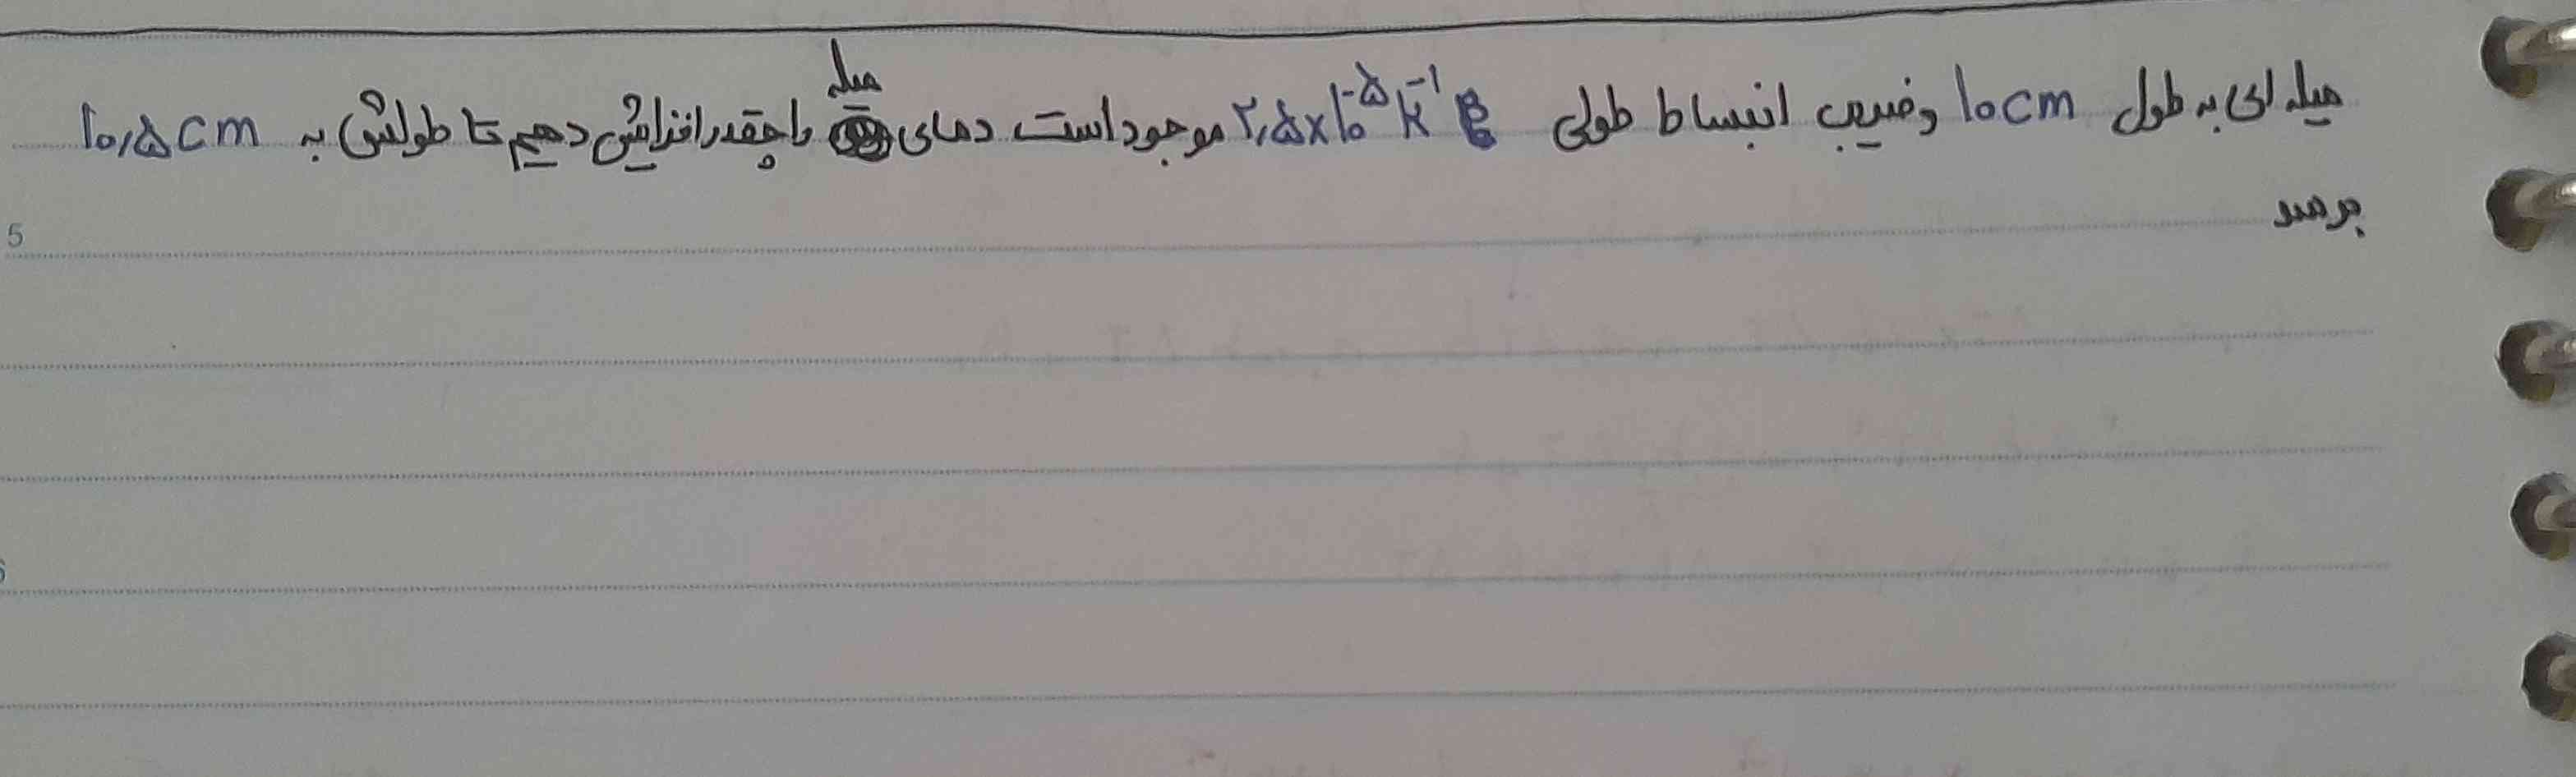 میله ای به طول ۱۰cm وضریب انبساط طولی ۲٫۵×۱۰⁻⁵ K⁻¹ موجود است دمای میله را چقدر افزایش دهیم تا طولش به ۱۰٫۵cm
برسد
5